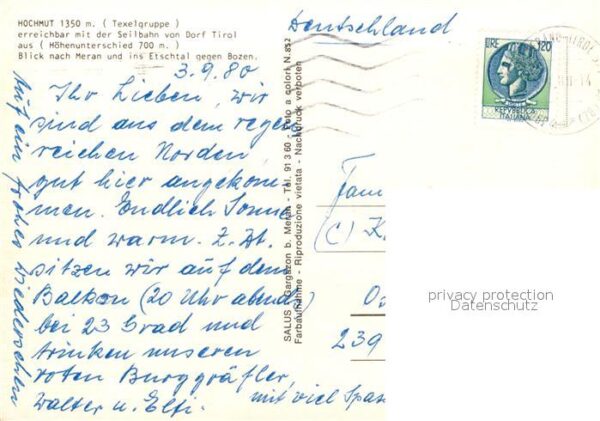 HOCHMUT 1350 m. ( Texelgruppe )
erreichbar mit der Seilbahn von Dorf Tirol
aus ( Höhenunterschied 700 m. )
Blick nach Meran und ins Etschtal gegen Bozen.
3.9.80
Ihr Lieben, wir
sind aus dem regen-
reichen Norden
gut hier angekom-
men. Endlich Sonne
und warm. Z. Zt.
sitzen wir auf dem
Balkon (20 Uhr abends)
bei 23 Grad und
trinken unseren
roten Burggräfler,
mit viel Spas
Walter u. Elfi.
Auf ein frohes Wiedersehen
SALUS - Gargazon b. Meran - Tel. 91 3 60 - Foto a colori N. 852
Farbaufnahme - Riproduzione vietata - Nachdruck verboten
Deutschland
LIRE 120
REPUBBLICA
ITALIANA
Fam
(C) K
239
privacy protection
Datenschutz